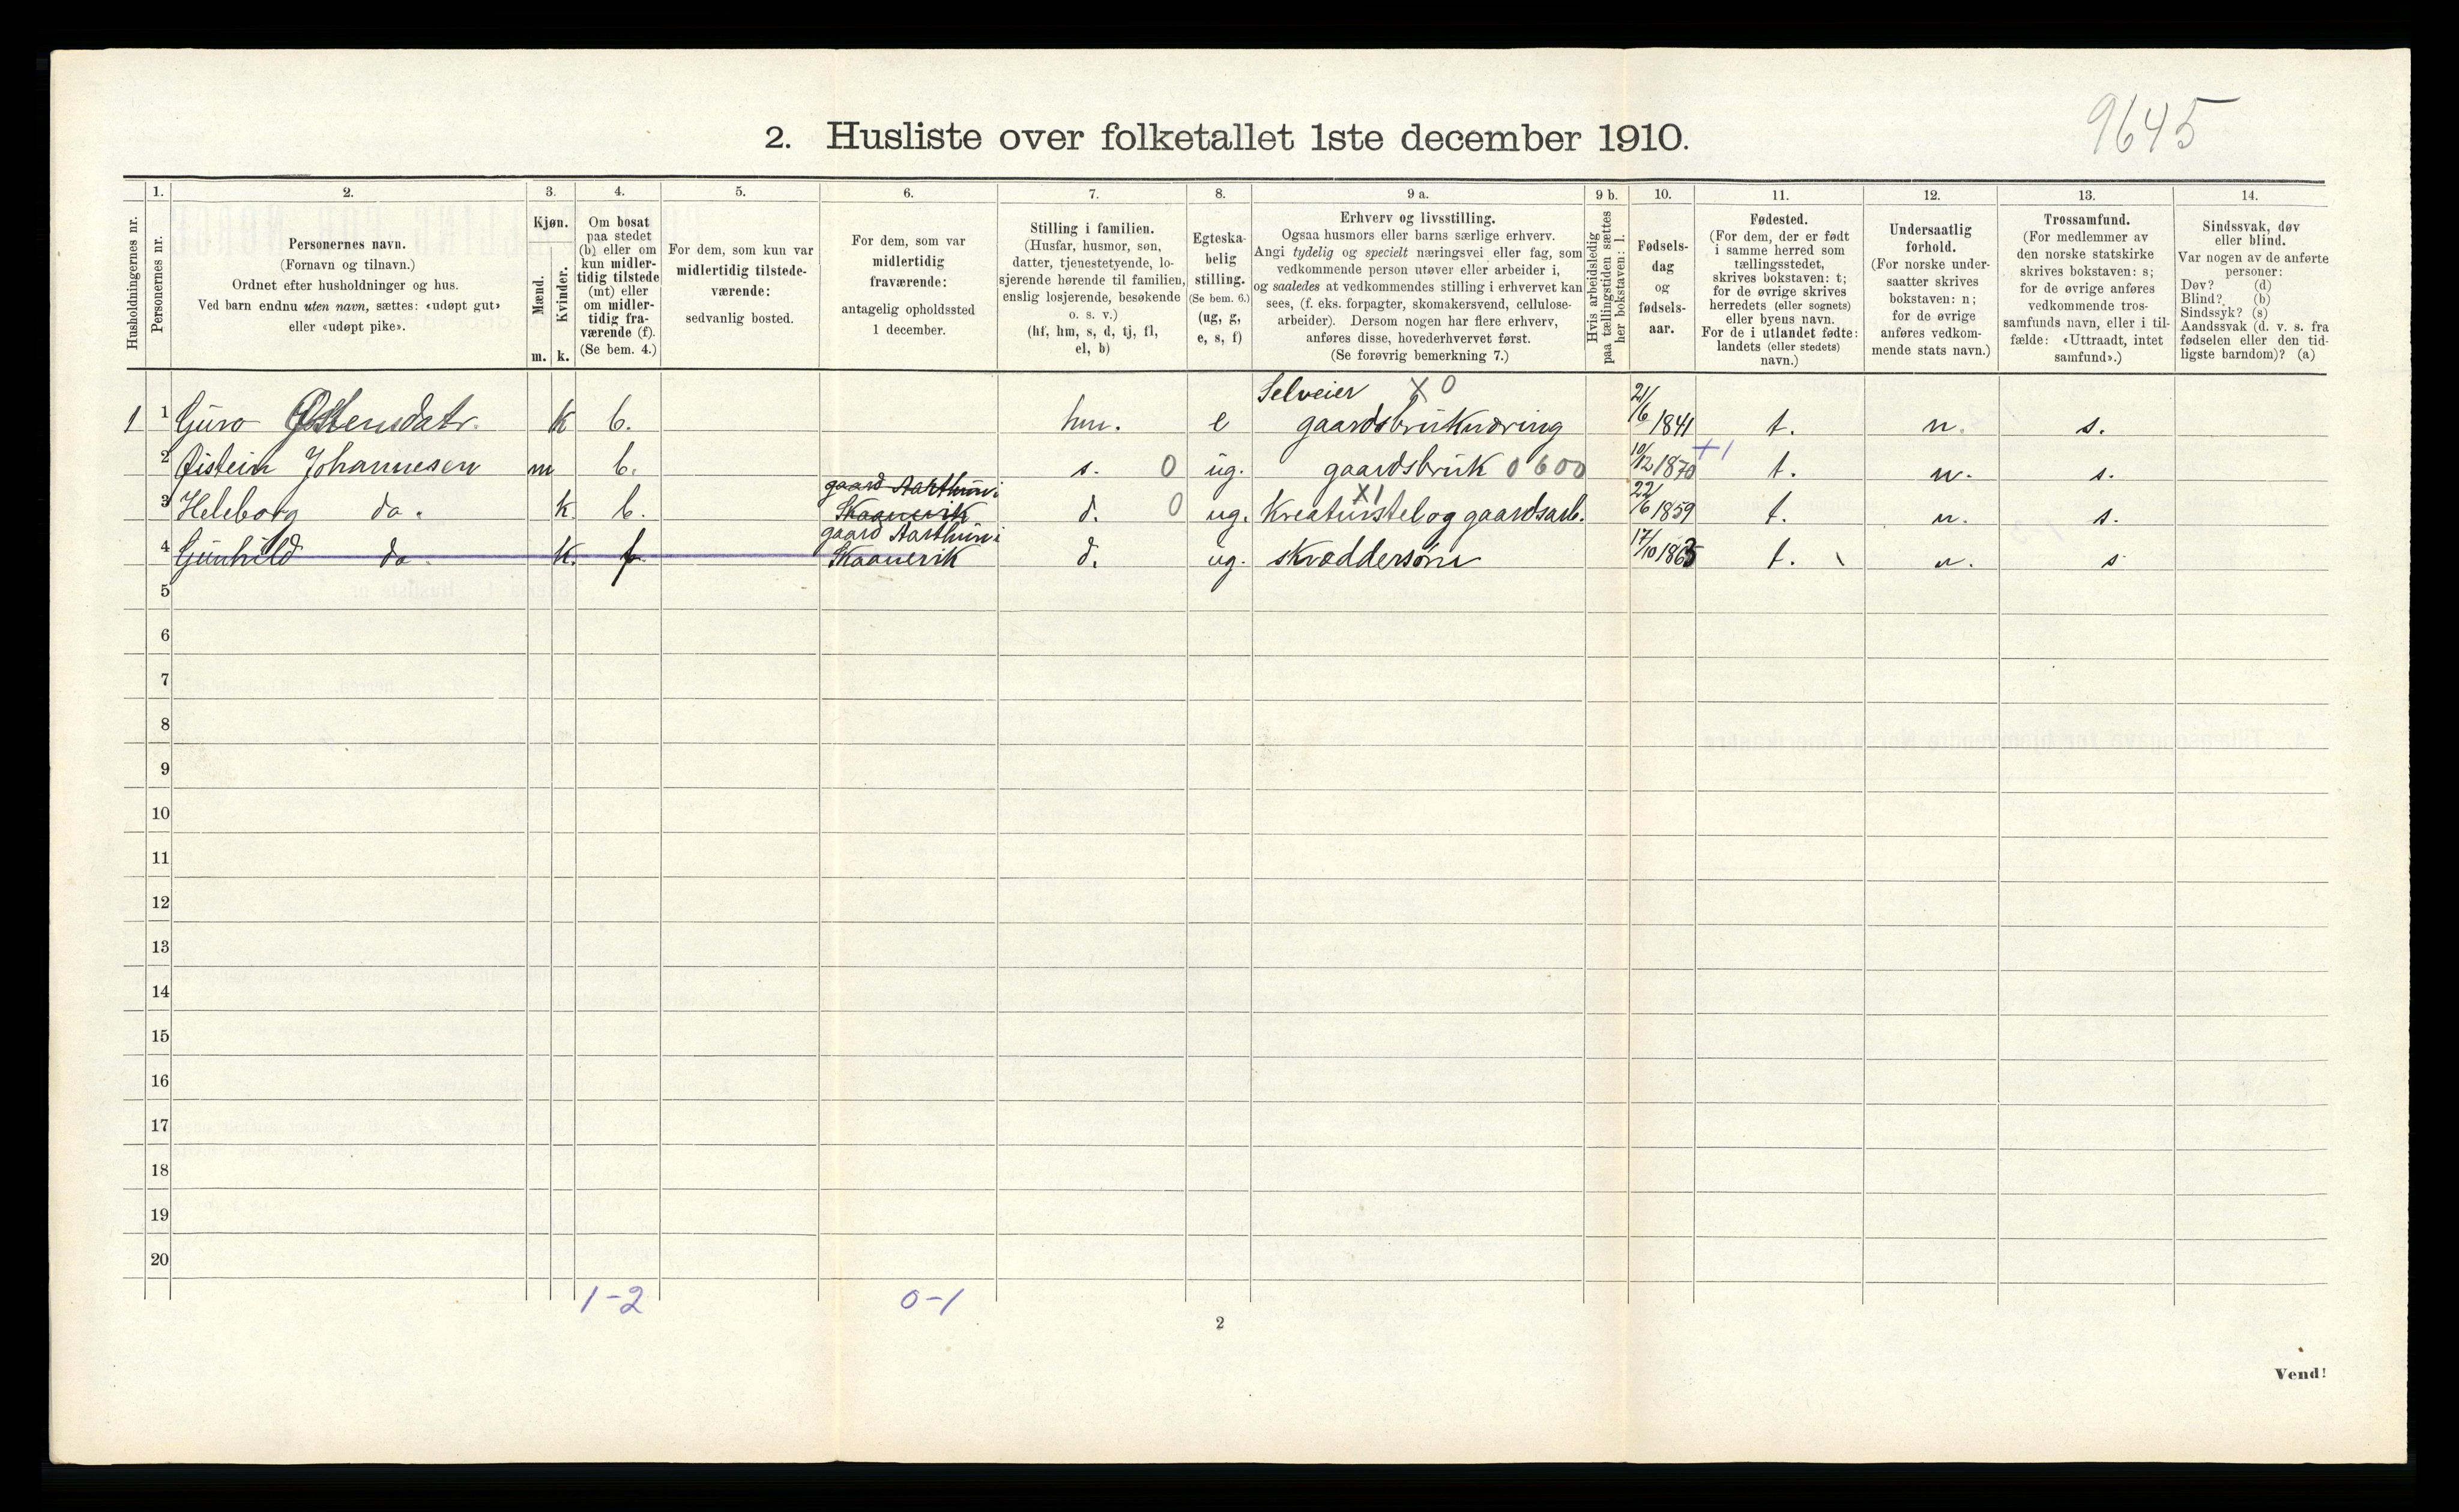 9645
2. Husliste over folketallet 1ste december 1910.
Husholdningernes nr.
1.
Personernes nr.
2.
Personernes navn.
(Fornavn og tilnavn.)
Ordnet efter husholdninger og hus.
Ved barn endnu uten navn, sættes: «udøpt gut»
eller «udøpt pike».
3.
Kjøn.
Mænd.
Kvinder.
m. k.
4.
Om bosat
paa stedet
(b) eller om
kun midler-
tidig tilstede
(mt) eller
om midler-
tidig fra-
værende (f).
(Se bem. 4.)
5.
For dem, som kun var
midlertidig tilstede-
værende:
sedvanlig bosted.
6.
For dem, som var
midlertidig
fraværende:
antagelig opholdssted
1 december.
7.
Stilling i familien.
(Husfar, husmor, søn,
datter, tjenestetyende, lo-
sjerende hørende til familien,
enslig losjerende, besøkende
o. s. v.)
(hf, hm, s, d, tj, fl,
el, b)
8.
Egteska-
belig
stilling.
(Se bem. 6.)
(ug, g,
e, s, f)
9 a.
Erhverv og livsstilling.
Ogsaa husmors eller barns særlige erhverv.
Angi tydelig og specielt næringsvei eller fag, som
vedkommende person utøver eller arbeider i,
og saaledes at vedkommendes stilling i erhvervet kan
sees, (f. eks. forpagter, skomakersvend, cellulose-
arbeider). Dersom nogen har flere erhverv,
anføres disse, hovederhvervet først.
(Se forøvrig bemerkning 7.)
9 b.
Hvis arbeidsledig
paa tællingstiden sættes
her bokstaven: l.
10.
Fødsels-
dag
og
fødsels-
aar.
11.
Fødested.
(For dem, der er født
i samme herred som
tællingsstedet,
skrives bokstaven: t;
for de øvrige skrives
herredets (eller sognets)
eller byens navn.
For de i utlandet fødte:
landets (eller stedets)
navn.)
12.
Undersaatlig
forhold.
(For norske under-
saatter skrives
bokstaven: n;
for de øvrige
anføres vedkom-
mende stats navn.)
13.
Trossamfund.
(For medlemmer av
den norske statskirke
skrives bokstaven: s;
for de øvrige anføres
vedkommende tros-
samfunds navn, eller i til-
fælde: «Uttraadt, intet
samfund».)
14.
Sindssvak, døv
eller blind.
Var nogen av de anførte
personer:
Døv? (d)
Blind? (b)
Sindssyk? (s)
Aandssvak (d. v. s. fra
fødselen eller den tid-
ligste barndom)? (a)
Selveier X 0
1 1 Guro Østensdatr. k b. hm. e gaardsbruknæring 21/6 1841 t. n. s.
2 Øistein Johannesen m b. s. 0 ug. gaardsbruk 0600 10/12 1870 +1 t. n. s.
gaard Aarthun i
X1
3 Heleborg do. k. b. Skaanevik d. 0 ug. Kreaturstel og gaardsarb. 22/6 1859 t. n. s.
gaard Aarthun i
4 Gunhild do. k. f. Skaanevik d. ug. skræddersøm 17/10 1863 t. n. s
5
6
7
8
9
10
11
12
13
14
15
16
17
18
19
20
1-2 0-1
2
Vend!